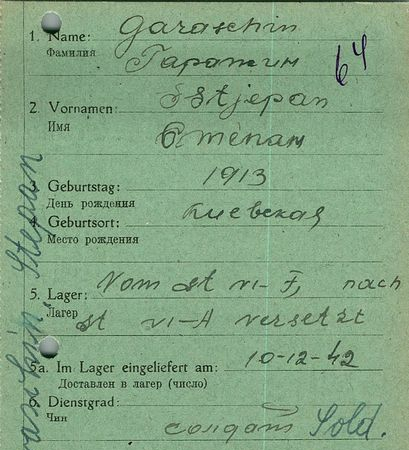 1. Name: Garaschin
Фамилия Гарашин
64
2. Vornamen: Sstjepan
Имя Степан
3. Geburtstag: 1913
День рождения
4. Geburtsort: Киевская
Место рождения
5. Lager: Vom St VI-F, nach
Лагер St VI-A versetzt
5a. Im Lager eingeliefert am: 10-12-42
Доставлен в лагер (число)
6. Dienstgrad:
Чин солдат Sold.
Stepan